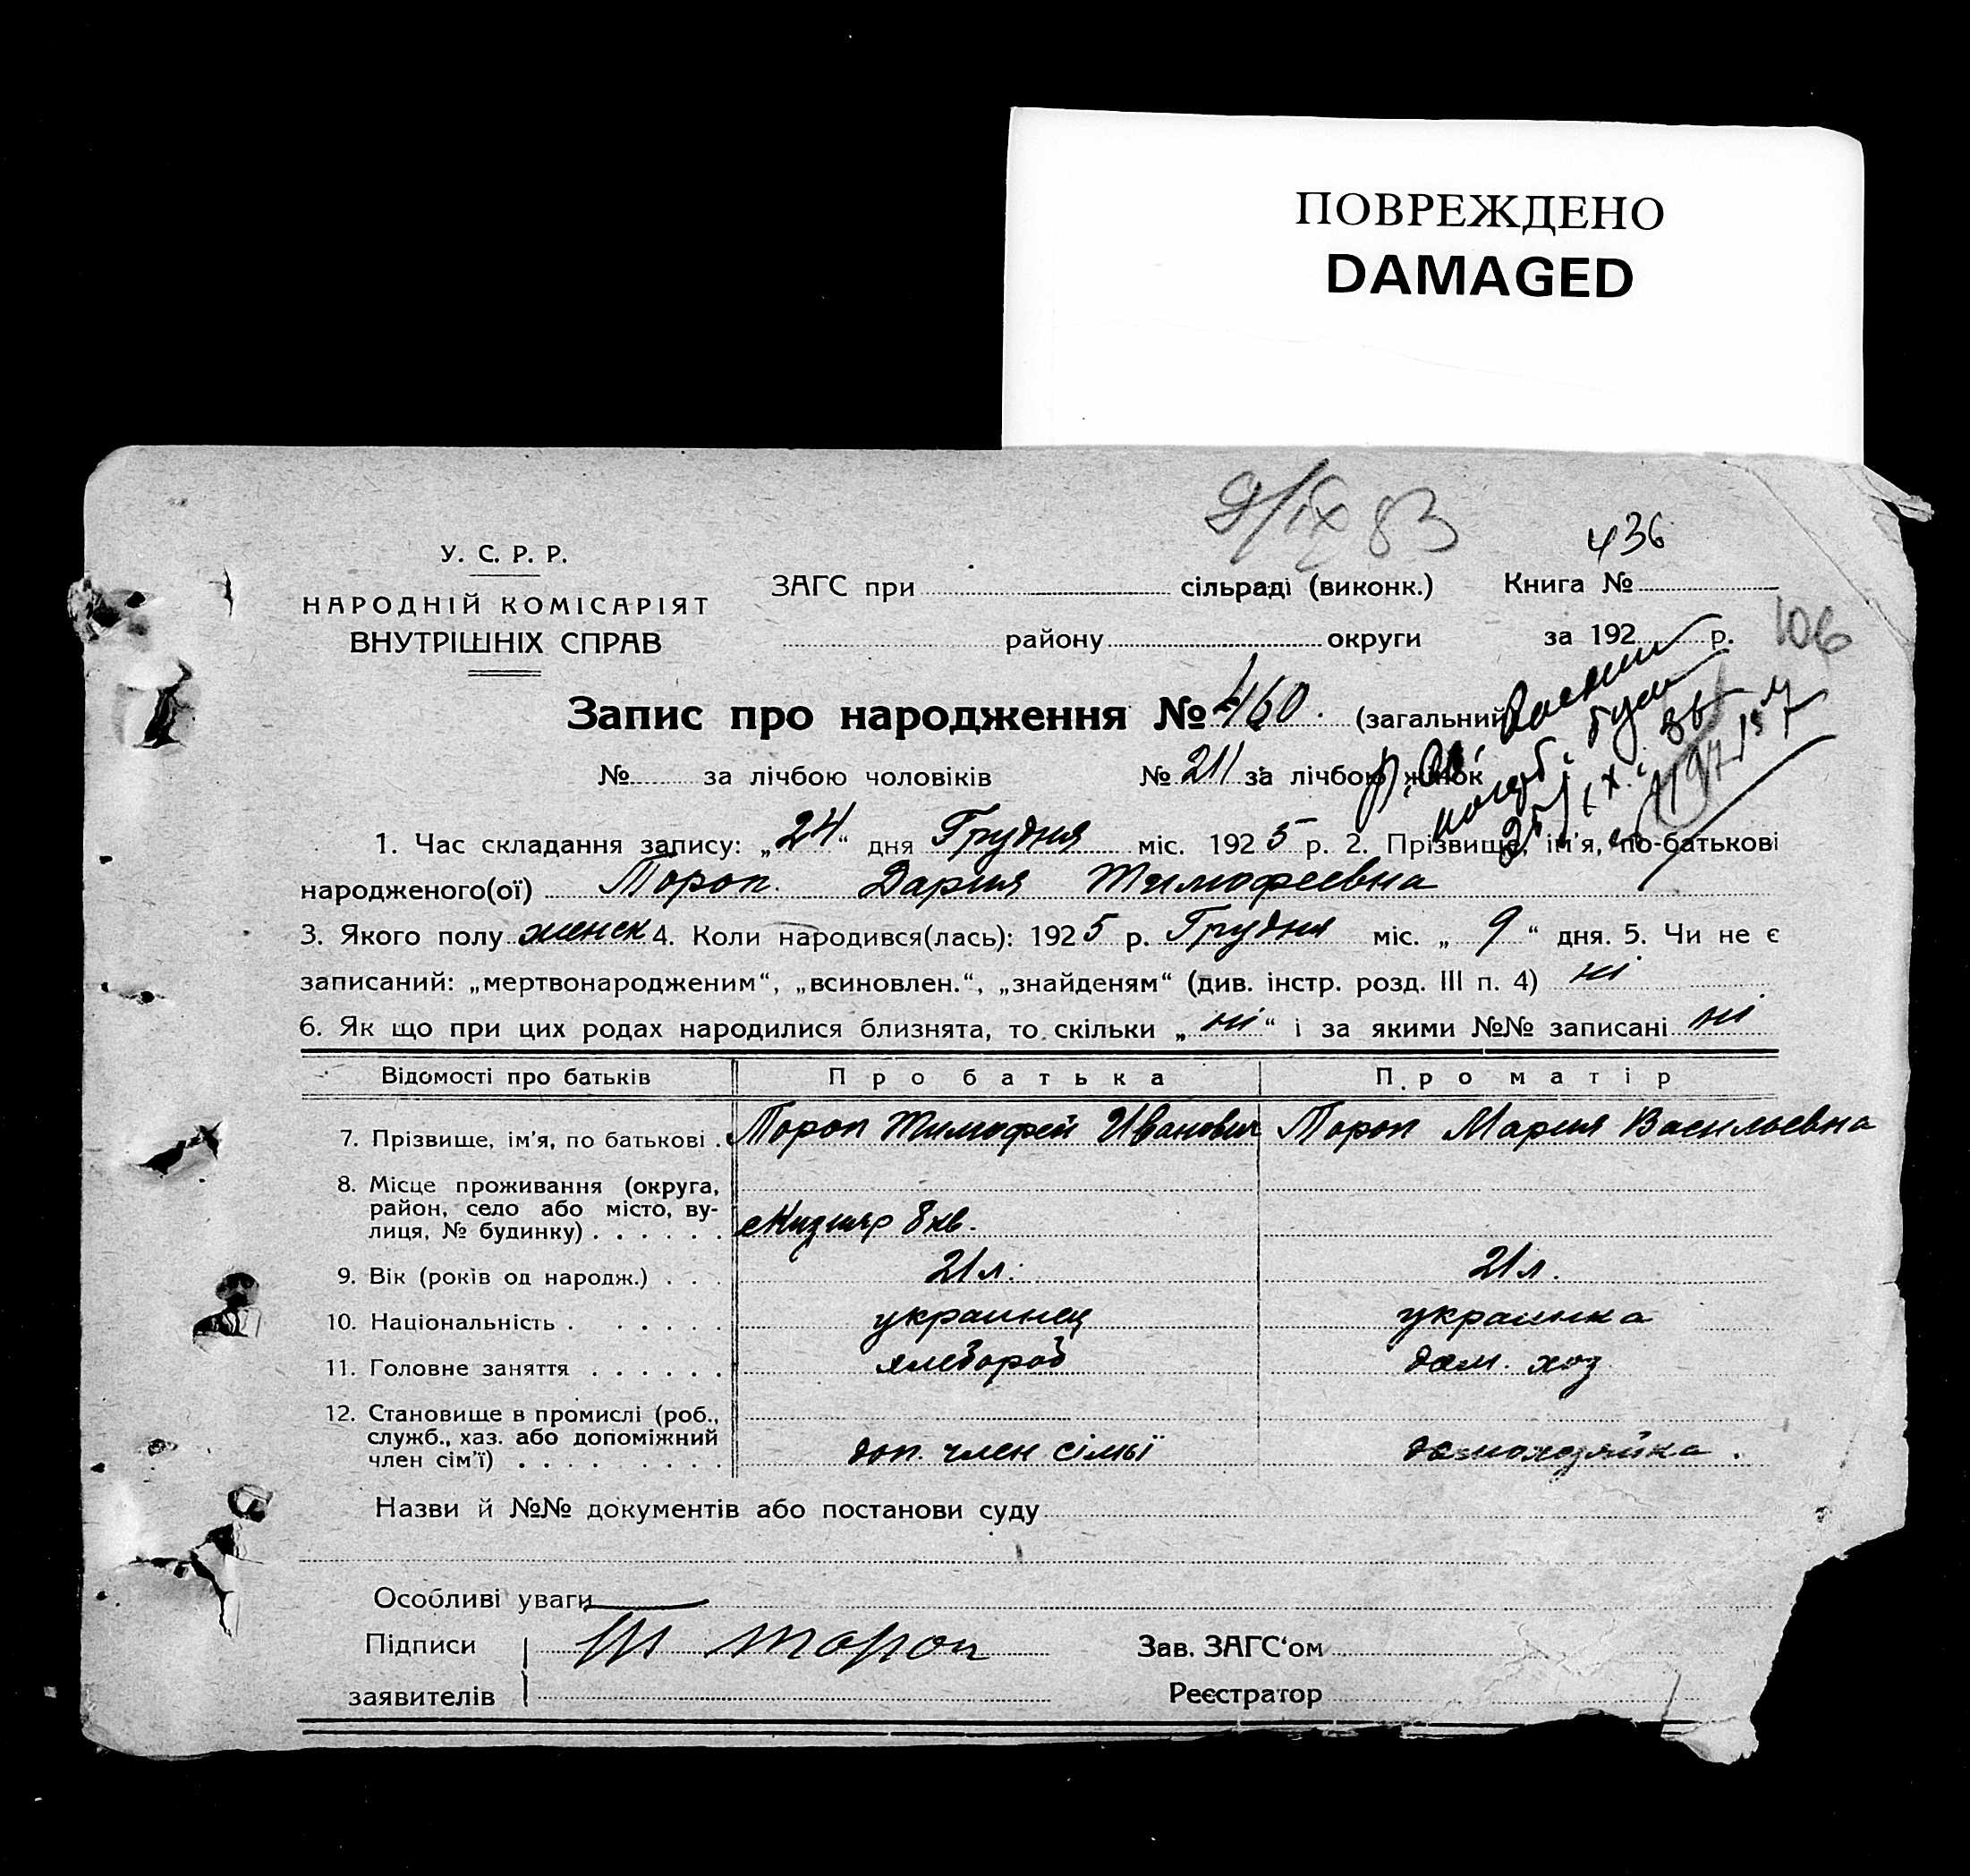 ПОВРЕЖДЕНО
DAMAGED
9/IX 83
436
У. С. Р. Р.
НАРОДНІЙ КОМІСАРІЯТ
ВНУТРІШНІХ СПРАВ
ЗАГС при сільраді (виконк.) Книга №
району округи за 192 р.
106
Запис про народження № 460. (загальний)
№ за лічбою чоловіків № 211 за лічбою жінок
1. Час складання запису: „24“ дня Грудня міс. 1925 р. 2. Прізвище, ім'я, по-батькові
народженого(ої) Тороп. Дария Тимофеевна
3. Якого полу женск 4. Коли народився(лась): 1925 р. Грудня міс. „9“ дня. 5. Чи не є
записаний: „мертвонародженим“, „всиновлен.“, „знайденям“ (див. інстр. розд. III п. 4) ні
6. Як що при цих родах народилися близнята, то скільки „ні“ і за якими №№ записані ні
Відомості про батьків Про батька Про матір
7. Прізвище, ім'я, по батькові . Тороп Тимофей Иванович Тороп Мария Васильевна
8. Місце проживання (округа,
район, село або місто, ву-
лиця, № будинку) . . . . . . 8 кв.
9. Вік (років од народж.) . . . 21 л. 21 л.
10. Національність . . . . . . украинец украинка
11. Головне заняття . . . . . . хлебороб дом. хоз
12. Становище в промислі (роб.,
служб., хаз. або допоміжний
член сім'ї) . . . . . . . . . доп. член сімьї домохозяйка.
Назви й №№ документів або постанови суду
Особливі уваги
Підписи Тороп Зав. ЗАГС'ом
заявителів Реєстратор